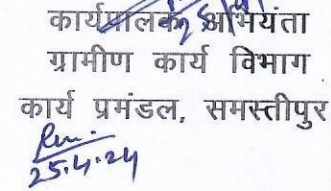 कार्यपालक अभियंता
ग्रामीण कार्य विभाग
कार्य प्रमंडल, समस्तीपुर
25.4.24